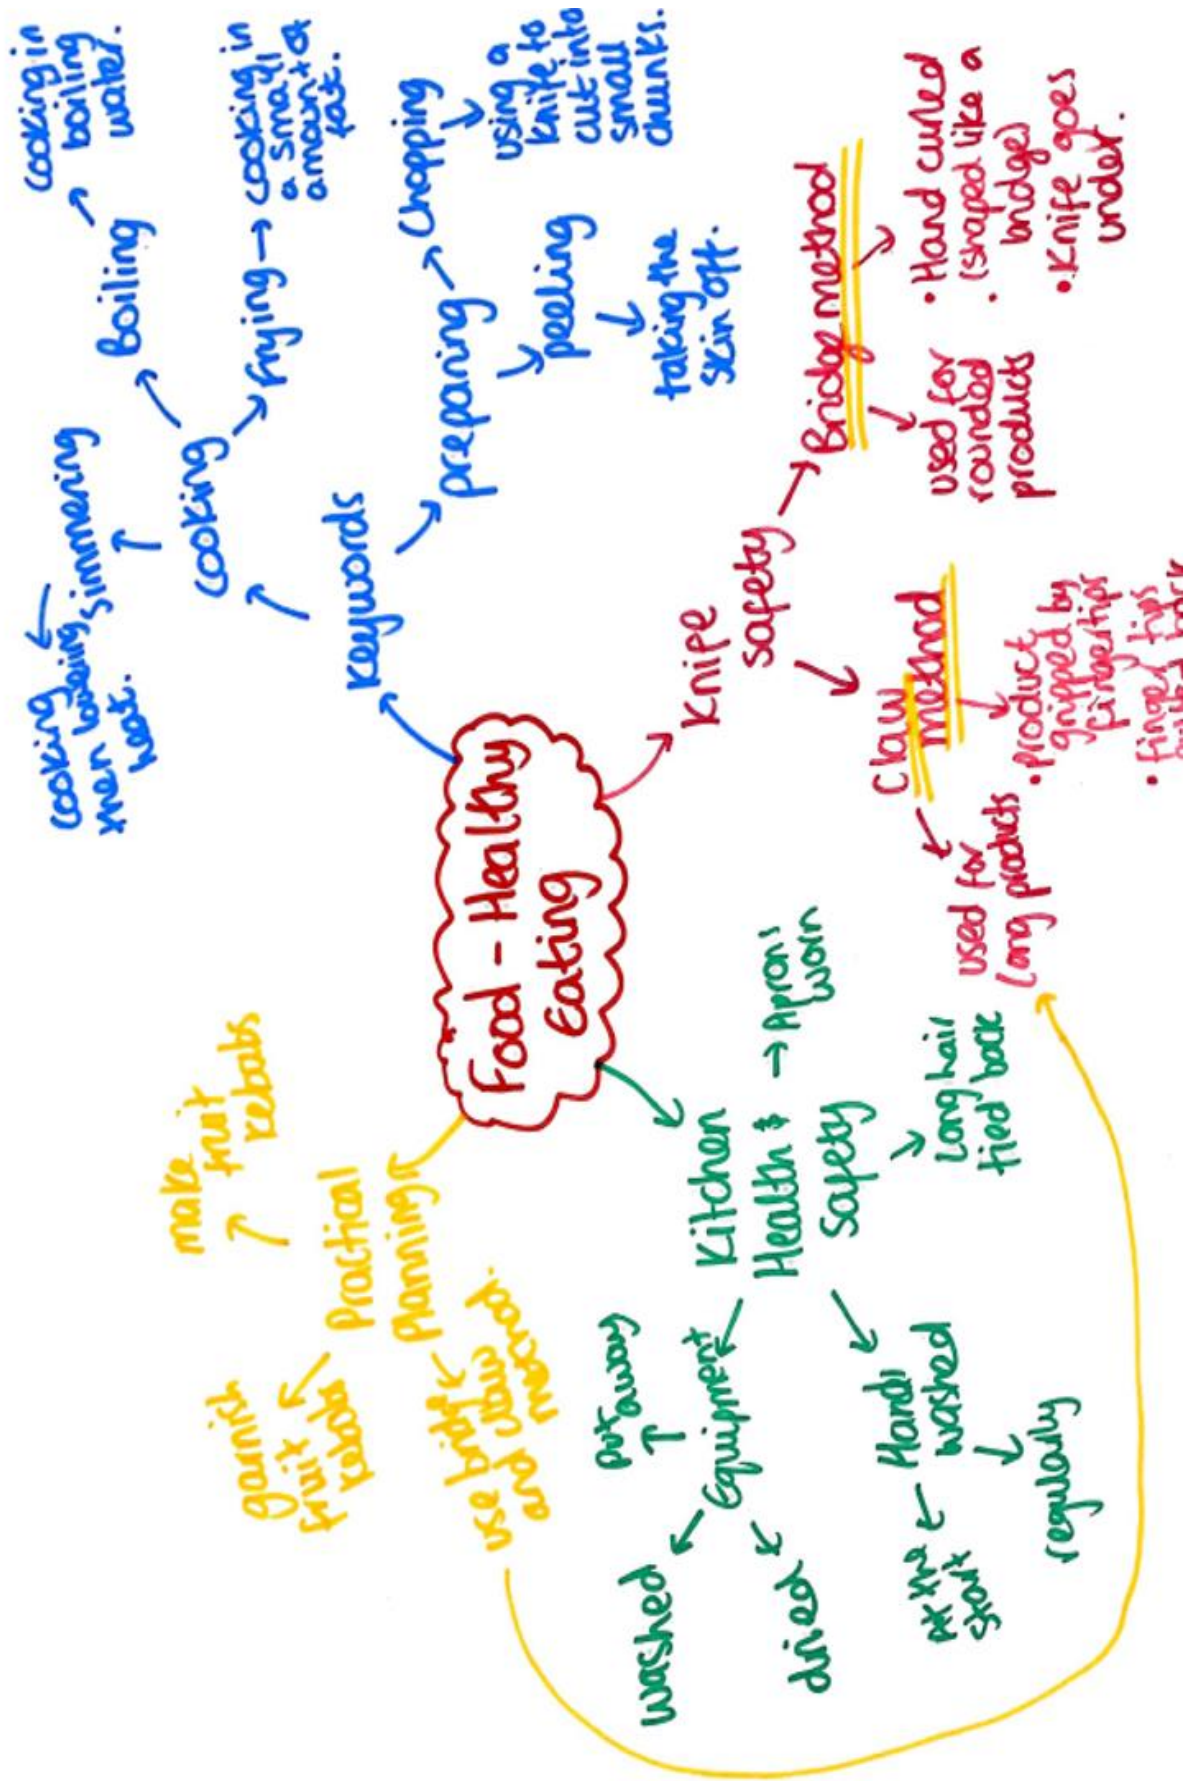 Food - Healthy
Eating
Keywords
cooking
simmering
cooking
then lowering
heat.
Boiling
cooking in
boiling
water.
frying
cooking in
a small
amount of
fat.
preparing
Chopping
using a
knife to
cut into
small
chunks.
peeling
taking the
skin off.
Knife
safety
Bridge method
• Hand curled
• (shaped like a
bridge)
• Knife goes
under.
used for
rounded
products
Claw
method
• product
gripped by
fingertips
• finger tips
used for
long products
Kitchen
Health &
Safety
Aprons
worn
Long hair
tied back
Hands
washed
At the
start
regularly
Equipment
put away
washed
dried
Practical
Planning
make
fruit
kebabs
garnish
fruit
kebabs
use bridge
and claw
method.